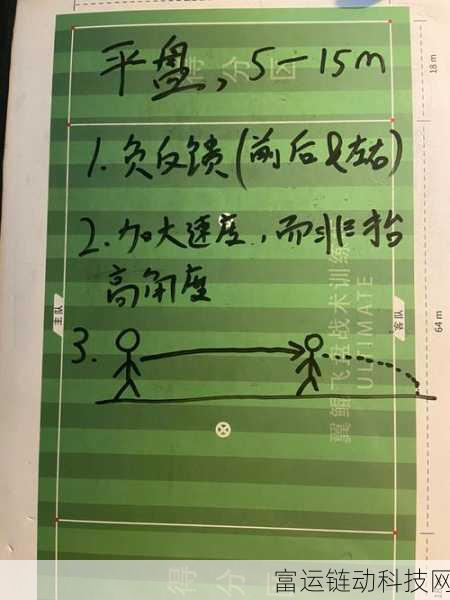 平盘，5-15m
得分区
18 m
1.负反馈(前后&左右)
2.加大速度，而非抬
高角度
主队
客队
64 m
翼鲲飞盘战术训练
ULTIMATE
3.
得分区
富运链动科技网